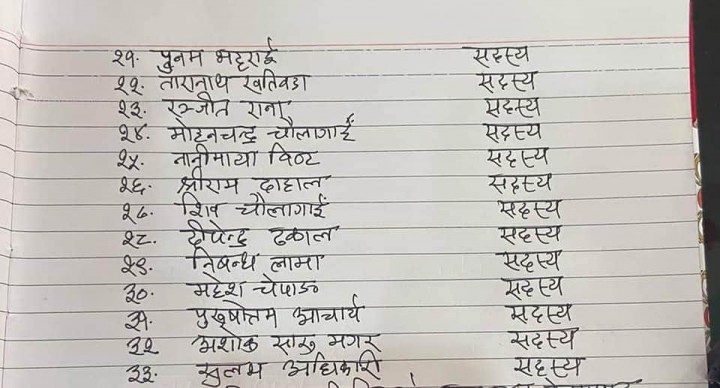 २१. पुनम भट्टराई सदस्य
२२. तारानाथ खतिवडा सदस्य
२३. रञ्जीत राना सदस्य
२४. मोहनचन्द्र चौलागाईं सदस्य
२५. नानीमाया विष्ट सदस्य
२६. श्रीराम दाहाल सदस्य
२७. शिव चौलागाईं सदस्य
२८. दीपेन्द्र ढकाल सदस्य
२९. निबन्ध लामा सदस्य
३०. महेश चेपाङ सदस्य
३१. पुरुषोतम आचार्य सदस्य
३२ अशोक सारु मगर सदस्य
३३. सुलभ अधिकारी सदस्य